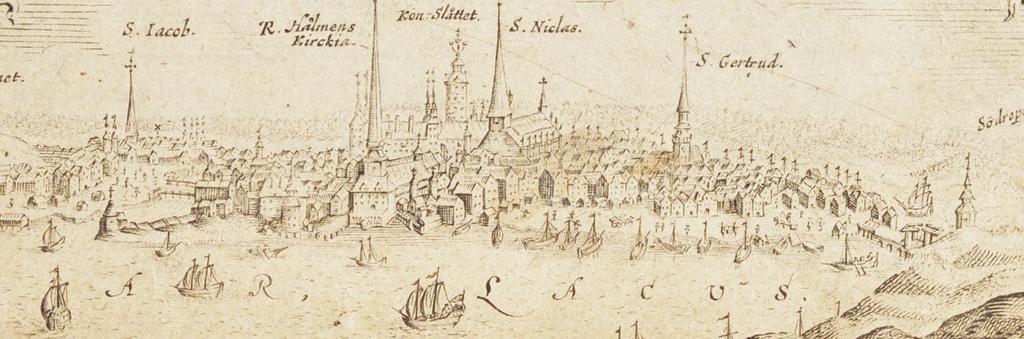 S. Iacob.
R. Hålmens
Kirckia.
Kon-Slåttet.
S. Niclas.
S. Gertrud.
et.
Södrop
A R, L A C U S.